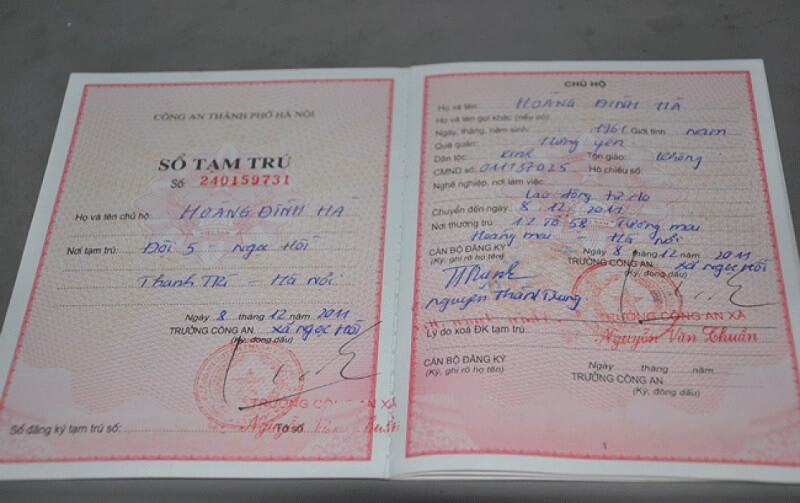 CÔNG AN THÀNH PHỐ HÀ NỘI
SỔ TẠM TRÚ
Số 240159731
Họ và tên chủ hộ: HOÀNG ĐÌNH HÀ
Nơi tạm trú: Đội 5 - Ngọc Hồi
Thanh Trì - Hà Nội
Ngày 8 tháng 12 năm 2011
TRƯỞNG CÔNG AN xã Ngọc Hồi
(Ký, đóng dấu)
TRƯỞNG CÔNG AN XÃ
Nguyễn Văn Chuẩn
Sổ đăng ký tạm trú số: Tờ số
CHỦ HỘ
Họ và tên: HOÀNG ĐÌNH HÀ
Họ và tên gọi khác (nếu có):
Ngày, tháng, năm sinh: 1961 Giới tính: nam
Quê quán: Hưng yên
Dân tộc: Kinh Tôn giáo: không
CMND số: 011157025 Hộ chiếu số:
Nghề nghiệp, nơi làm việc:
Lao động tự do
Chuyển đến ngày: 8/12/2011
Nơi thường trú: 17 Tổ 58 Tương mai
Hoàng mai - Hà nội
CÁN BỘ ĐĂNG KÝ
(Ký, ghi rõ họ tên)
Ngày 8 tháng 12 năm 2011
TRƯỞNG CÔNG AN xã Ngọc Hồi
(Ký, đóng dấu)
TRƯỞNG CÔNG AN XÃ
Nguyễn Văn Chuẩn
Lý do xoá ĐK tạm trú:
CÁN BỘ ĐĂNG KÝ
(Ký, ghi rõ họ tên)
Ngày tháng năm
TRƯỞNG CÔNG AN
(Ký, đóng dấu)
1